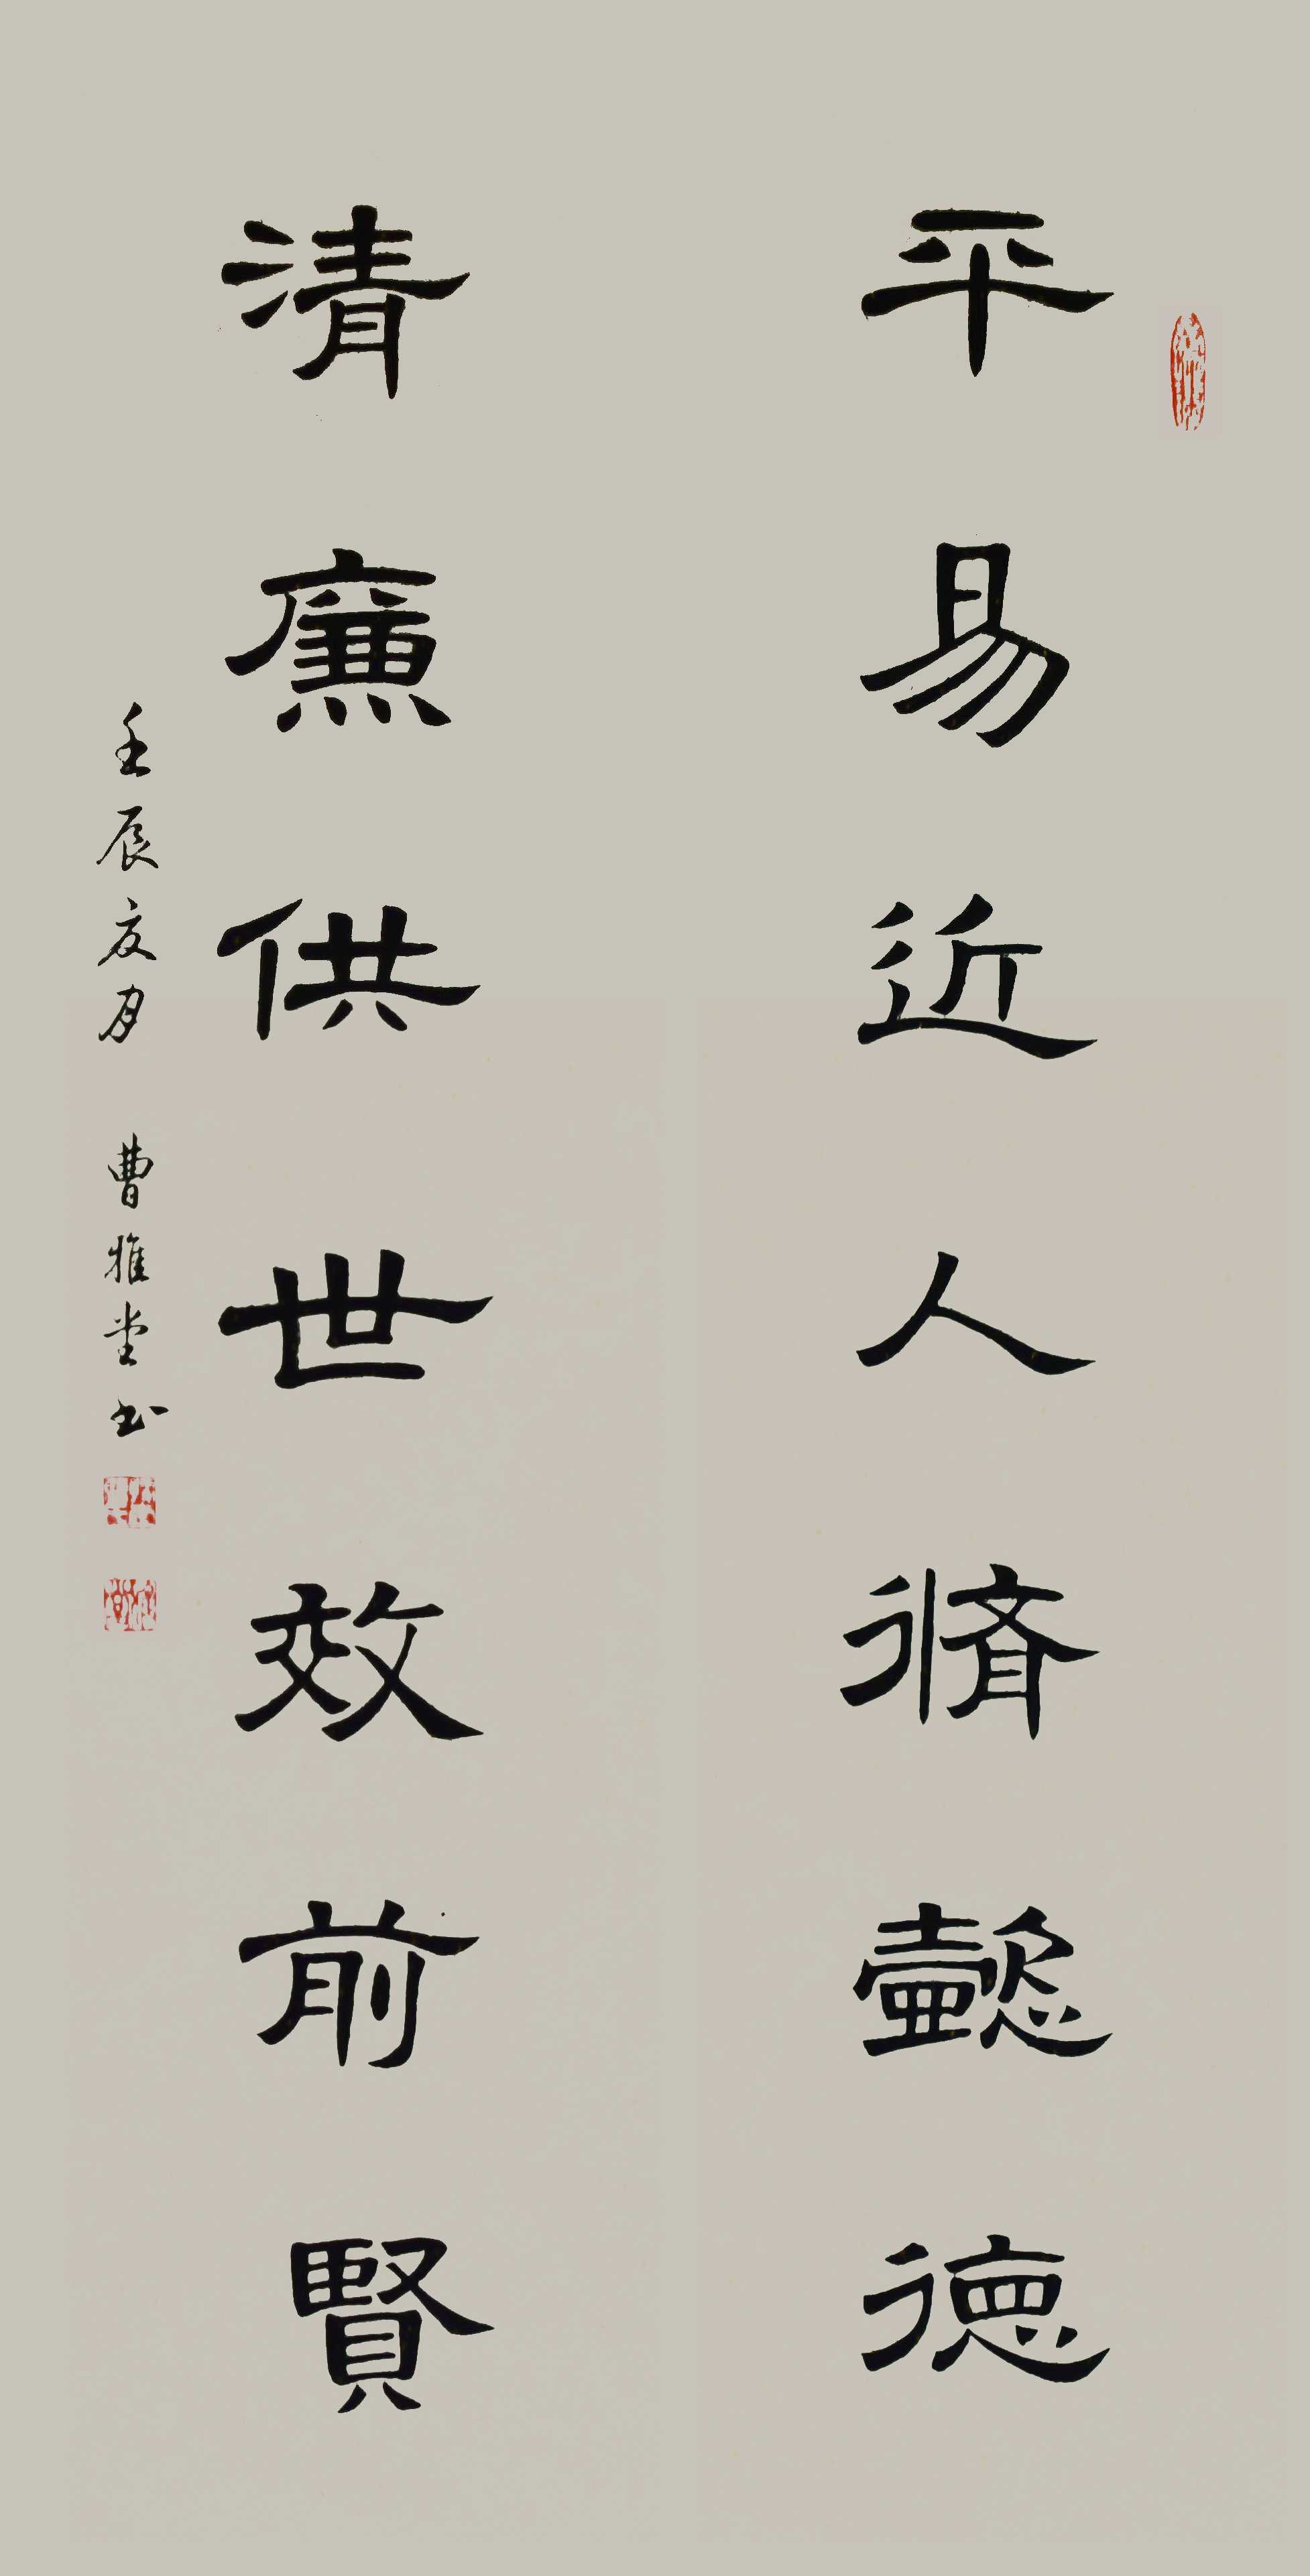 平易近人脩懿德
清廉供世效前賢
壬辰夏月 曹雅堂书